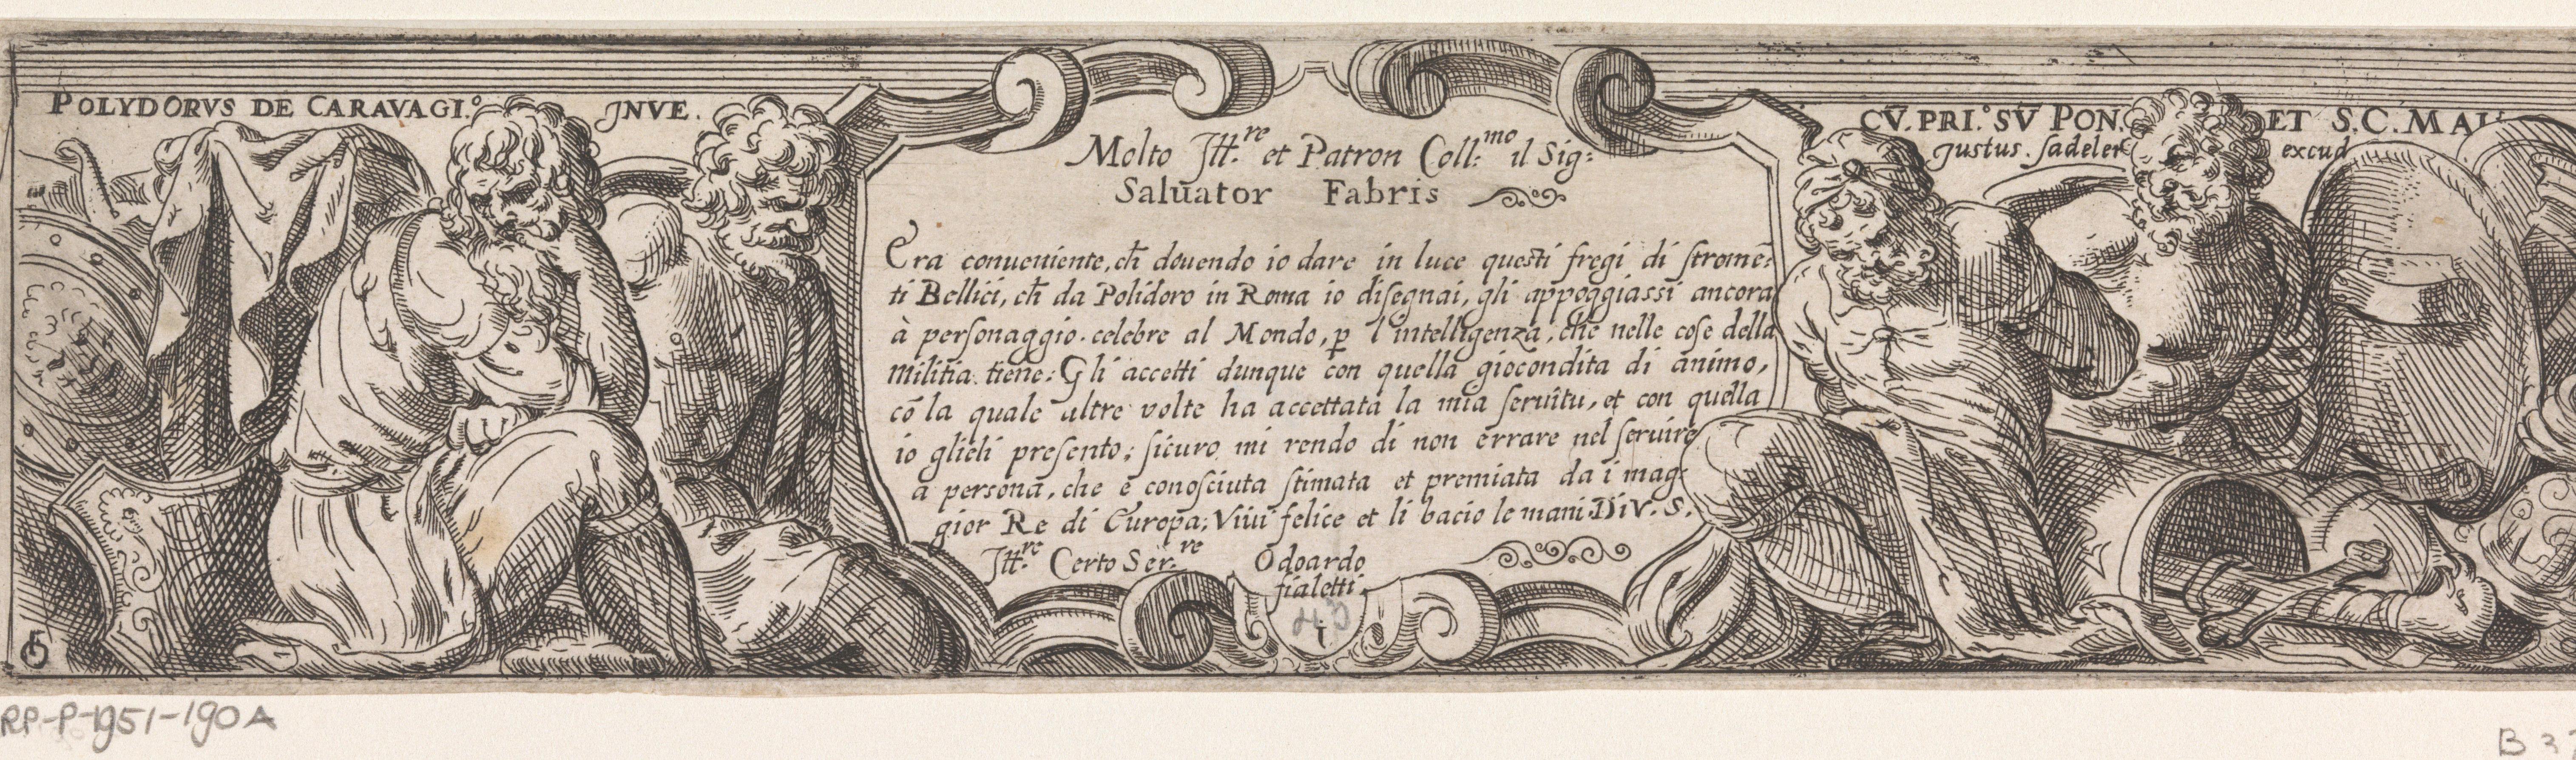 POLYDORVS DE CARAVAGI.o JNVE.
CV̄. PRI.o SV̄ PON. ET S.C. MAI
Justus. sadeler excud
Molto Jll.re et Patron Coll:mo il Sig:
Saluator Fabris
Era conueniente, ch̄ douendo io dare in luce questi fregi di stromē:
ti Bellici, ch̄ da Polidoro in Roma io disegnai, gli appoggiassi ancora
à personaggio celebre al Mondo, p̱ l'intelligenza, che nelle cose della
militia tiene; Gli accetti dunque con quella giocondita di animo,
cō la quale altre volte ha accettata la mia seruitu, et con quella
io glieli presento; sicuro mi rendo di non errare nel seruire
a persona, che è conosciuta stimata et premiata da i mag:
gior Re di Europa; Viui felice et li bacio le mani. Di V. S.
Jll.re Certo Ser.re Odoardo
fialetti
1
5
RP-P-1951-190A
B 37